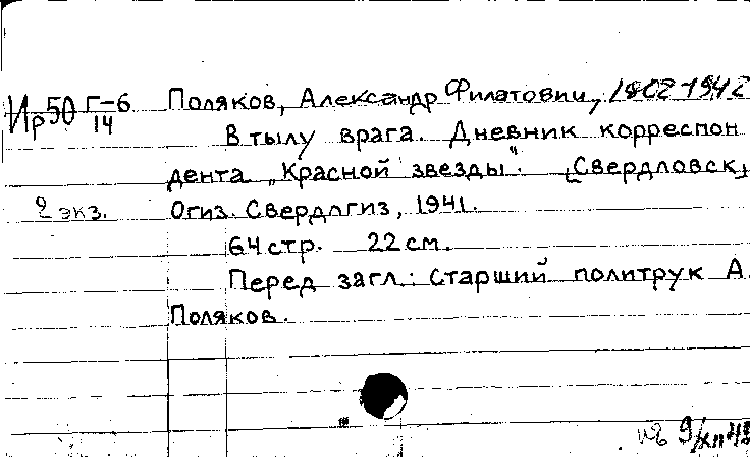 Ир50 Г-6/14 Поляков, Александр Филатович, 1902-1942
В тылу врага. Дневник корреспон
дента „Красной звезды". [Свердловск]
2 экз. Огиз. Свердлгиз, 1941.
64 стр. 22 см.
Перед загл.: Старший политрук А.
Поляков.